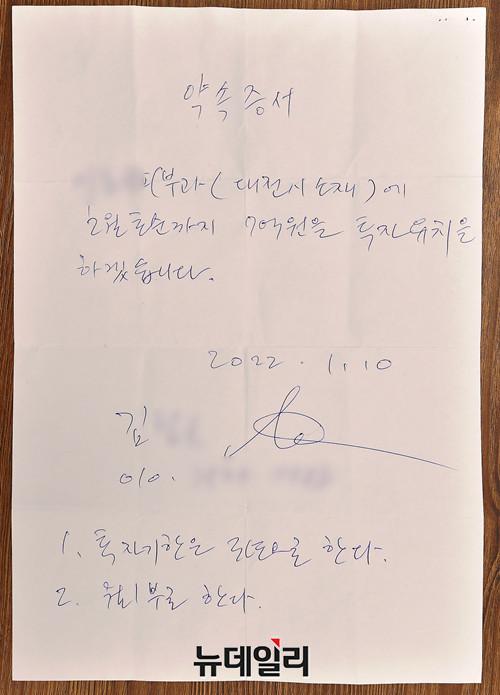 약속증서
피부과(대전시소재)에
2월초순까지 7억원을 투자유치을
하겠습니다.
2022. 1. 10
김
010.
1. 투자기한은 으로 한다.
2. 부로 한다.
뉴데일리